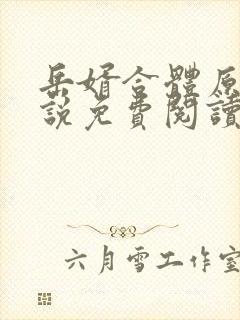 岳婿合體原
說免費閱讀
六月雪工作室